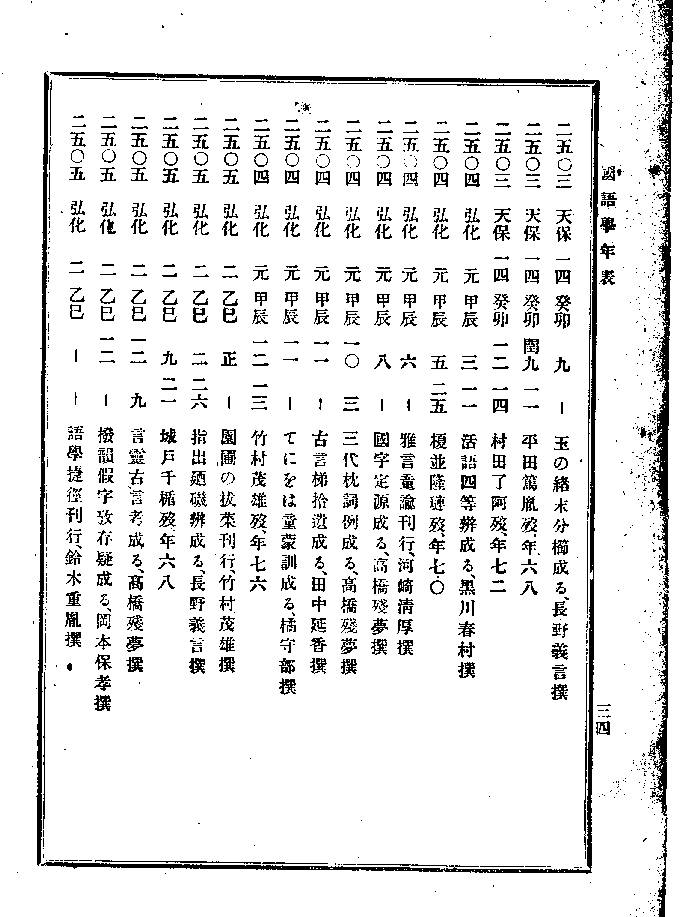 國語學年表
二五〇三 天保 一四 癸卯 九 ー 玉の緒末分櫛成る、長野義言撰
二五〇三 天保 一四 癸卯 閏九 一一 平田篤胤歿、年六八
二五〇三 天保 一四 癸卯 一二 一四 村田了阿歿、年七二
二五〇四 弘化 元 甲辰 三 一一 活語四等辨成る、黒川春村撰
二五〇四 弘化 元 甲辰 五 二五 榎並隆璉歿、年七〇
二五〇四 弘化 元 甲辰 六 ー 雅言童諭刊行、河崎清厚撰
二五〇四 弘化 元 甲辰 八 ー 國字定源成る、高橋殘夢撰
二五〇四 弘化 元 甲辰 一〇 三 三代枕詞例成る、高橋殘夢撰
二五〇四 弘化 元 甲辰 一一 ー 古言梯拾遺成る、田中延香撰
二五〇四 弘化 元 甲辰 一一 ー てにをは童蒙訓成る、橘守部撰
二五〇四 弘化 元 甲辰 一二 一三 竹村茂雄歿、年七六
二五〇五 弘化 二 乙巳 正 ー 園圃の拔菜刊行、竹村茂雄撰
二五〇五 弘化 二 乙巳 二 二六 指出廼磯辨成る、長野義言撰
二五〇五 弘化 二 乙巳 九 二一 城戸千楯歿、年六八
二五〇五 弘化 二 乙巳 一二 九 言靈古言考成る、高橋殘夢撰
二五〇五 弘化 二 乙巳 一二 ー 撥韻假字攷存疑成る、岡本保孝撰
二五〇五 弘化 二 乙巳 ー ー 語學捷徑刊行、鈴木重胤撰
三四